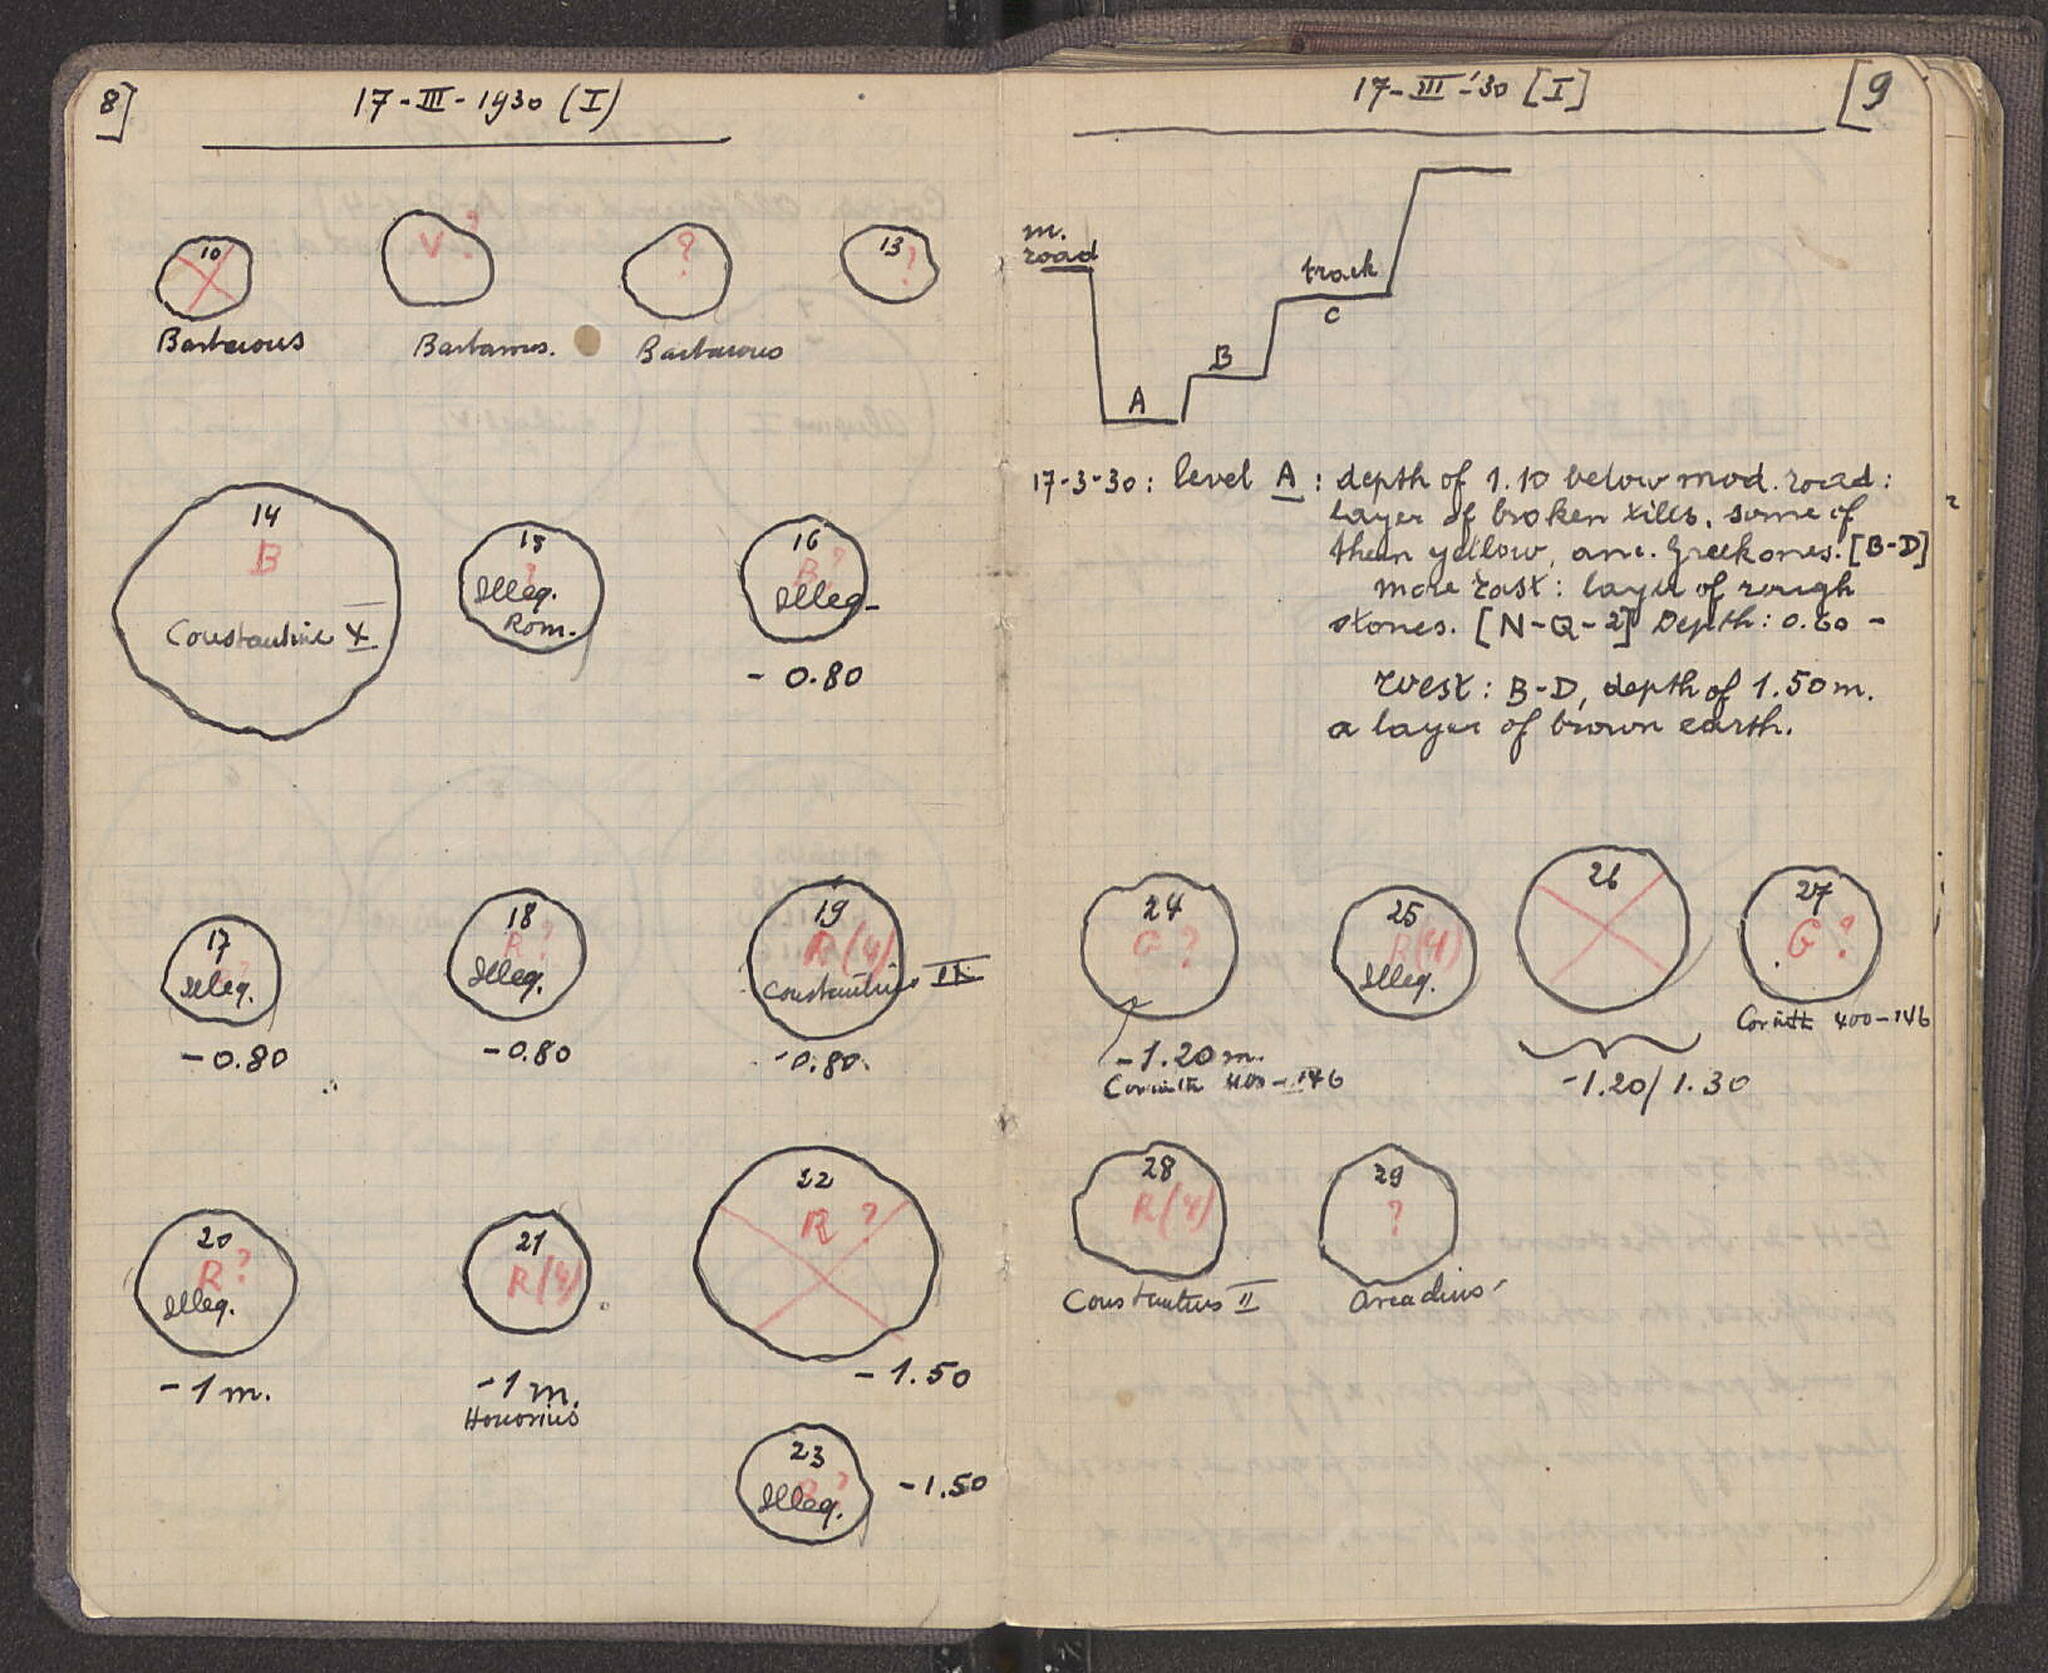 8]
17-III-1930 (I)
10
V ?
?
13
?
Barbarous
Barbarous.
Barbarous
14
B
Constantine X
15
?
Illeg.
Rom.
16
B?
Illeg.
- 0.80
17
Illeg.
- 0.80
18
R ?
Illeg.
- 0.80
19
R (4)
Constantius II
- 0.80
20
R ?
Illeg.
- 1 m.
21
R (4)
- 1 m.
Honorius
22
R ?
- 1.50
23
Illeg.
- 1.50
17-III-'30 [I]
[9
m.
road
track
C
B
A
17-3-30: level A: depth of 1.10 below mod. road:
layer of broken tiles, some of
them yellow, anc. Greek ones. [B-D]
more East: layer of rough
stones. [N-Q-2] Depth: 0.60 -
West: B-D, depth of 1.50 m.
a layer of brown earth.
24
G ?
- 1.20 m.
Corinth 400-146
25
R (4)
Illeg.
26
- 1.20/1.30
27
G ?
Corinth 400-146
28
R (4)
Constantius II
29
?
Arcadius